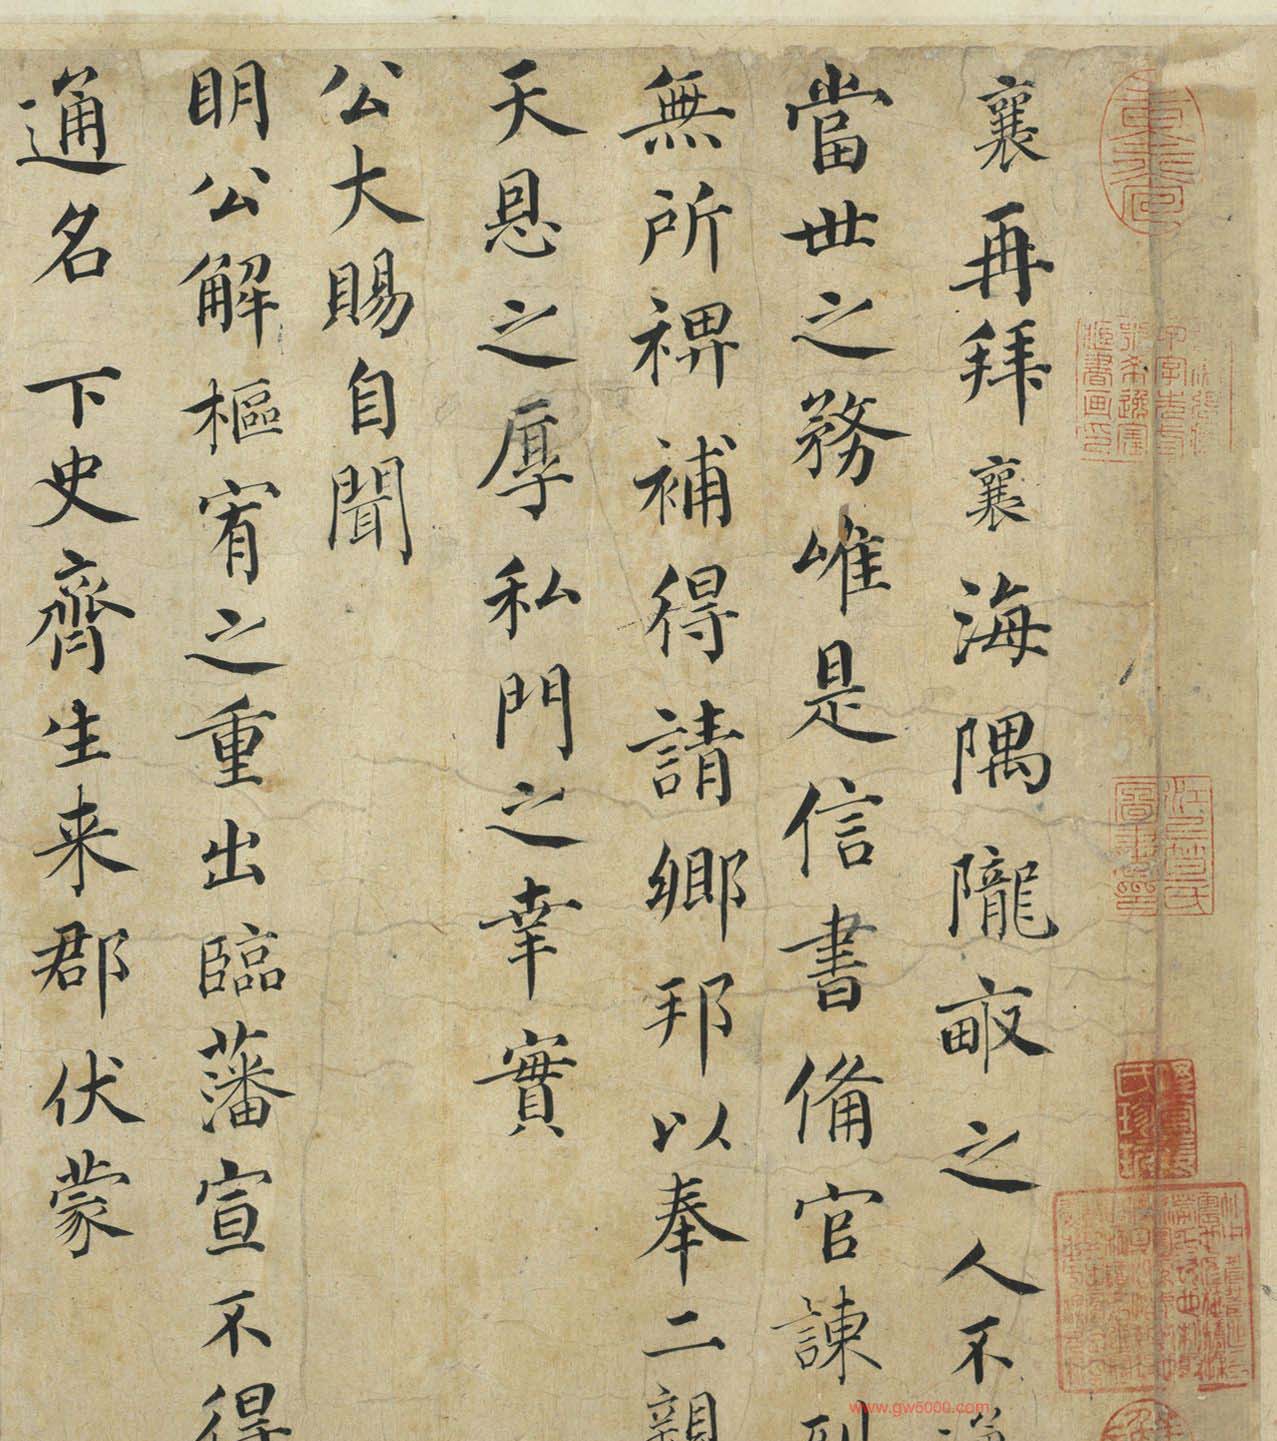 襄再拜襄海隅隴畝之人不
當世之務唯是信書備官諫列
無所裨補得請鄉邦以奉二親
天恩之厚私門之幸實
公大賜自聞
明公解樞宥之重出臨藩宣不得
通名下史齊生来郡伏蒙
www.gw5000.com